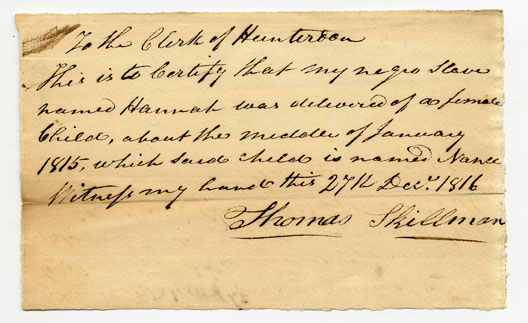 To the Clerk of Hunterdon
This is to Certify that my negro Slave
named Hannah was delivered of a female
Child, about the middle of January
1815, which said child is named Nance
Witness my hand this 27th Decr. 1816
Thomas Skillman